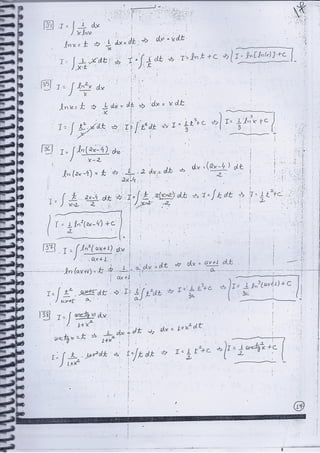 34 I = ∫ 1/(x lnx) dx
lnx = t ⇒ 1/x dx = dt ⇒ dx = xdt
I = ∫ 1/(x·t) xdt ⇒ I = ∫ 1/t dt ⇒ I = ln t + C ⇒ I = ln[ln(x)] + C
35 I = ∫ ln²x/x dx
lnx = t ⇒ 1/x dx = dt ⇒ dx = x dt
I = ∫ t²/x · x dt ⇒ I = ∫ t² dt ⇒ I = 1/3 t³ + C ⇒ I = 1/3 ln³x + C
36 I = ∫ ln(2x-4)/(x-2) dx
ln(2x-4) = t ⇒ 1/(2x-4) · 2 dx = dt ⇒ dx = (2x-4)/2 dt
I = ∫ t/(x-2) · (2x-4)/2 dt ⇒ I = ∫ t/(x-2) · 2(x-2)/2 dt ⇒ I = ∫ t dt ⇒ I = 1/2 t² + C
I = 1/2 ln²(2x-4) + C
37 I = ∫ ln²(ax+1)/(ax+1) dx
ln(ax+1) = t ⇒ 1/(ax+1) · a dx = dt ⇒ dx = (ax+1)/a dt
I = ∫ t²/(ax+1) · (ax+1)/a dt ⇒ I = 1/a ∫ t² dt ⇒ I = 1/3a t³ + C ⇒ I = 1/3a ln³(ax+1) + C
38 I = ∫ arctg x/(1+x²) dx
arctg x = t ⇒ 1/(1+x²) dx = dt ⇒ dx = 1+x² dt
I = ∫ t/(1+x²) · 1+x² dt ⇒ I = ∫ t dt ⇒ I = 1/2 t² + C ⇒ I = 1/2 arctg² x + C